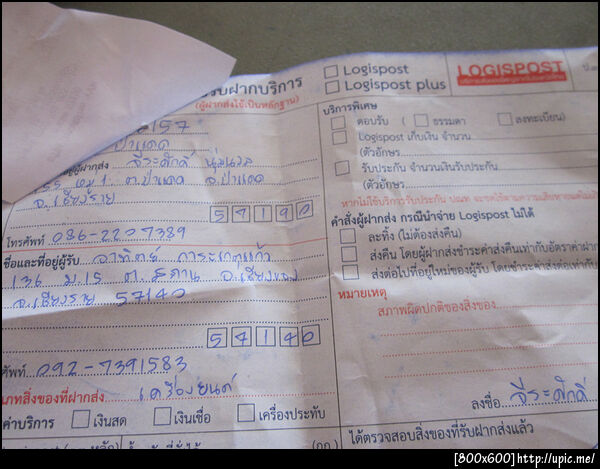 รับฝากบริการ
(ผู้ฝากส่งใช้เป็นหลักฐาน)
6157
ป่าแดด
ผู้ฝากส่ง จีระศักดิ์ นุ่มนวล
155 หมู่ 1. ต.ป่าแดด อ.ป่าแดด
จ.เชียงราย
57190
โทรศัพท์ 086-2207389
ชื่อและที่อยู่ผู้รับ อาทิตย์ การะเกตุแก้ว
136 ม.15 ต.สถาน อ.เชียงของ
จ.เชียงราย 57140
57140
ศัพท์ 092-7391583
เภทสิ่งของที่ฝากส่ง เครื่องยนต์
ค่าบริการ เงินสด เงินเชื่อ เครื่องประทับ
Logispost
Logispost plus
LOGISPOST
บริการพิเศษ
ตอบรับ ( ธรรมดา ลงทะเบียน)
Logispost เก็บเงิน จำนวน
(ตัวอักษร
รับประกัน จำนวนเงินรับประกัน
(ตัวอักษร
หากไม่ใช้บริการรับประกัน ปณท จะชดใช้ตามความเสียหาย
คำสั่งผู้ฝากส่ง กรณีนำจ่าย Logispost ไม่ได้
ละทิ้ง (ไม่ต้องส่งคืน)
ส่งคืน โดยผู้ฝากส่งชำระค่าส่งคืนเท่ากับอัตราค่าฝาก
ส่งต่อไปที่อยู่ใหม่ของผู้รับ โดยชำระค่าส่งต่อเท่ากับ
หมายเหตุ
สภาพผิดปกติของสิ่งของ
ลงชื่อ จีระศักดิ์
ได้ตรวจสอบสิ่งของที่รับฝากส่งแล้ว
[800x600]http://upic.me/